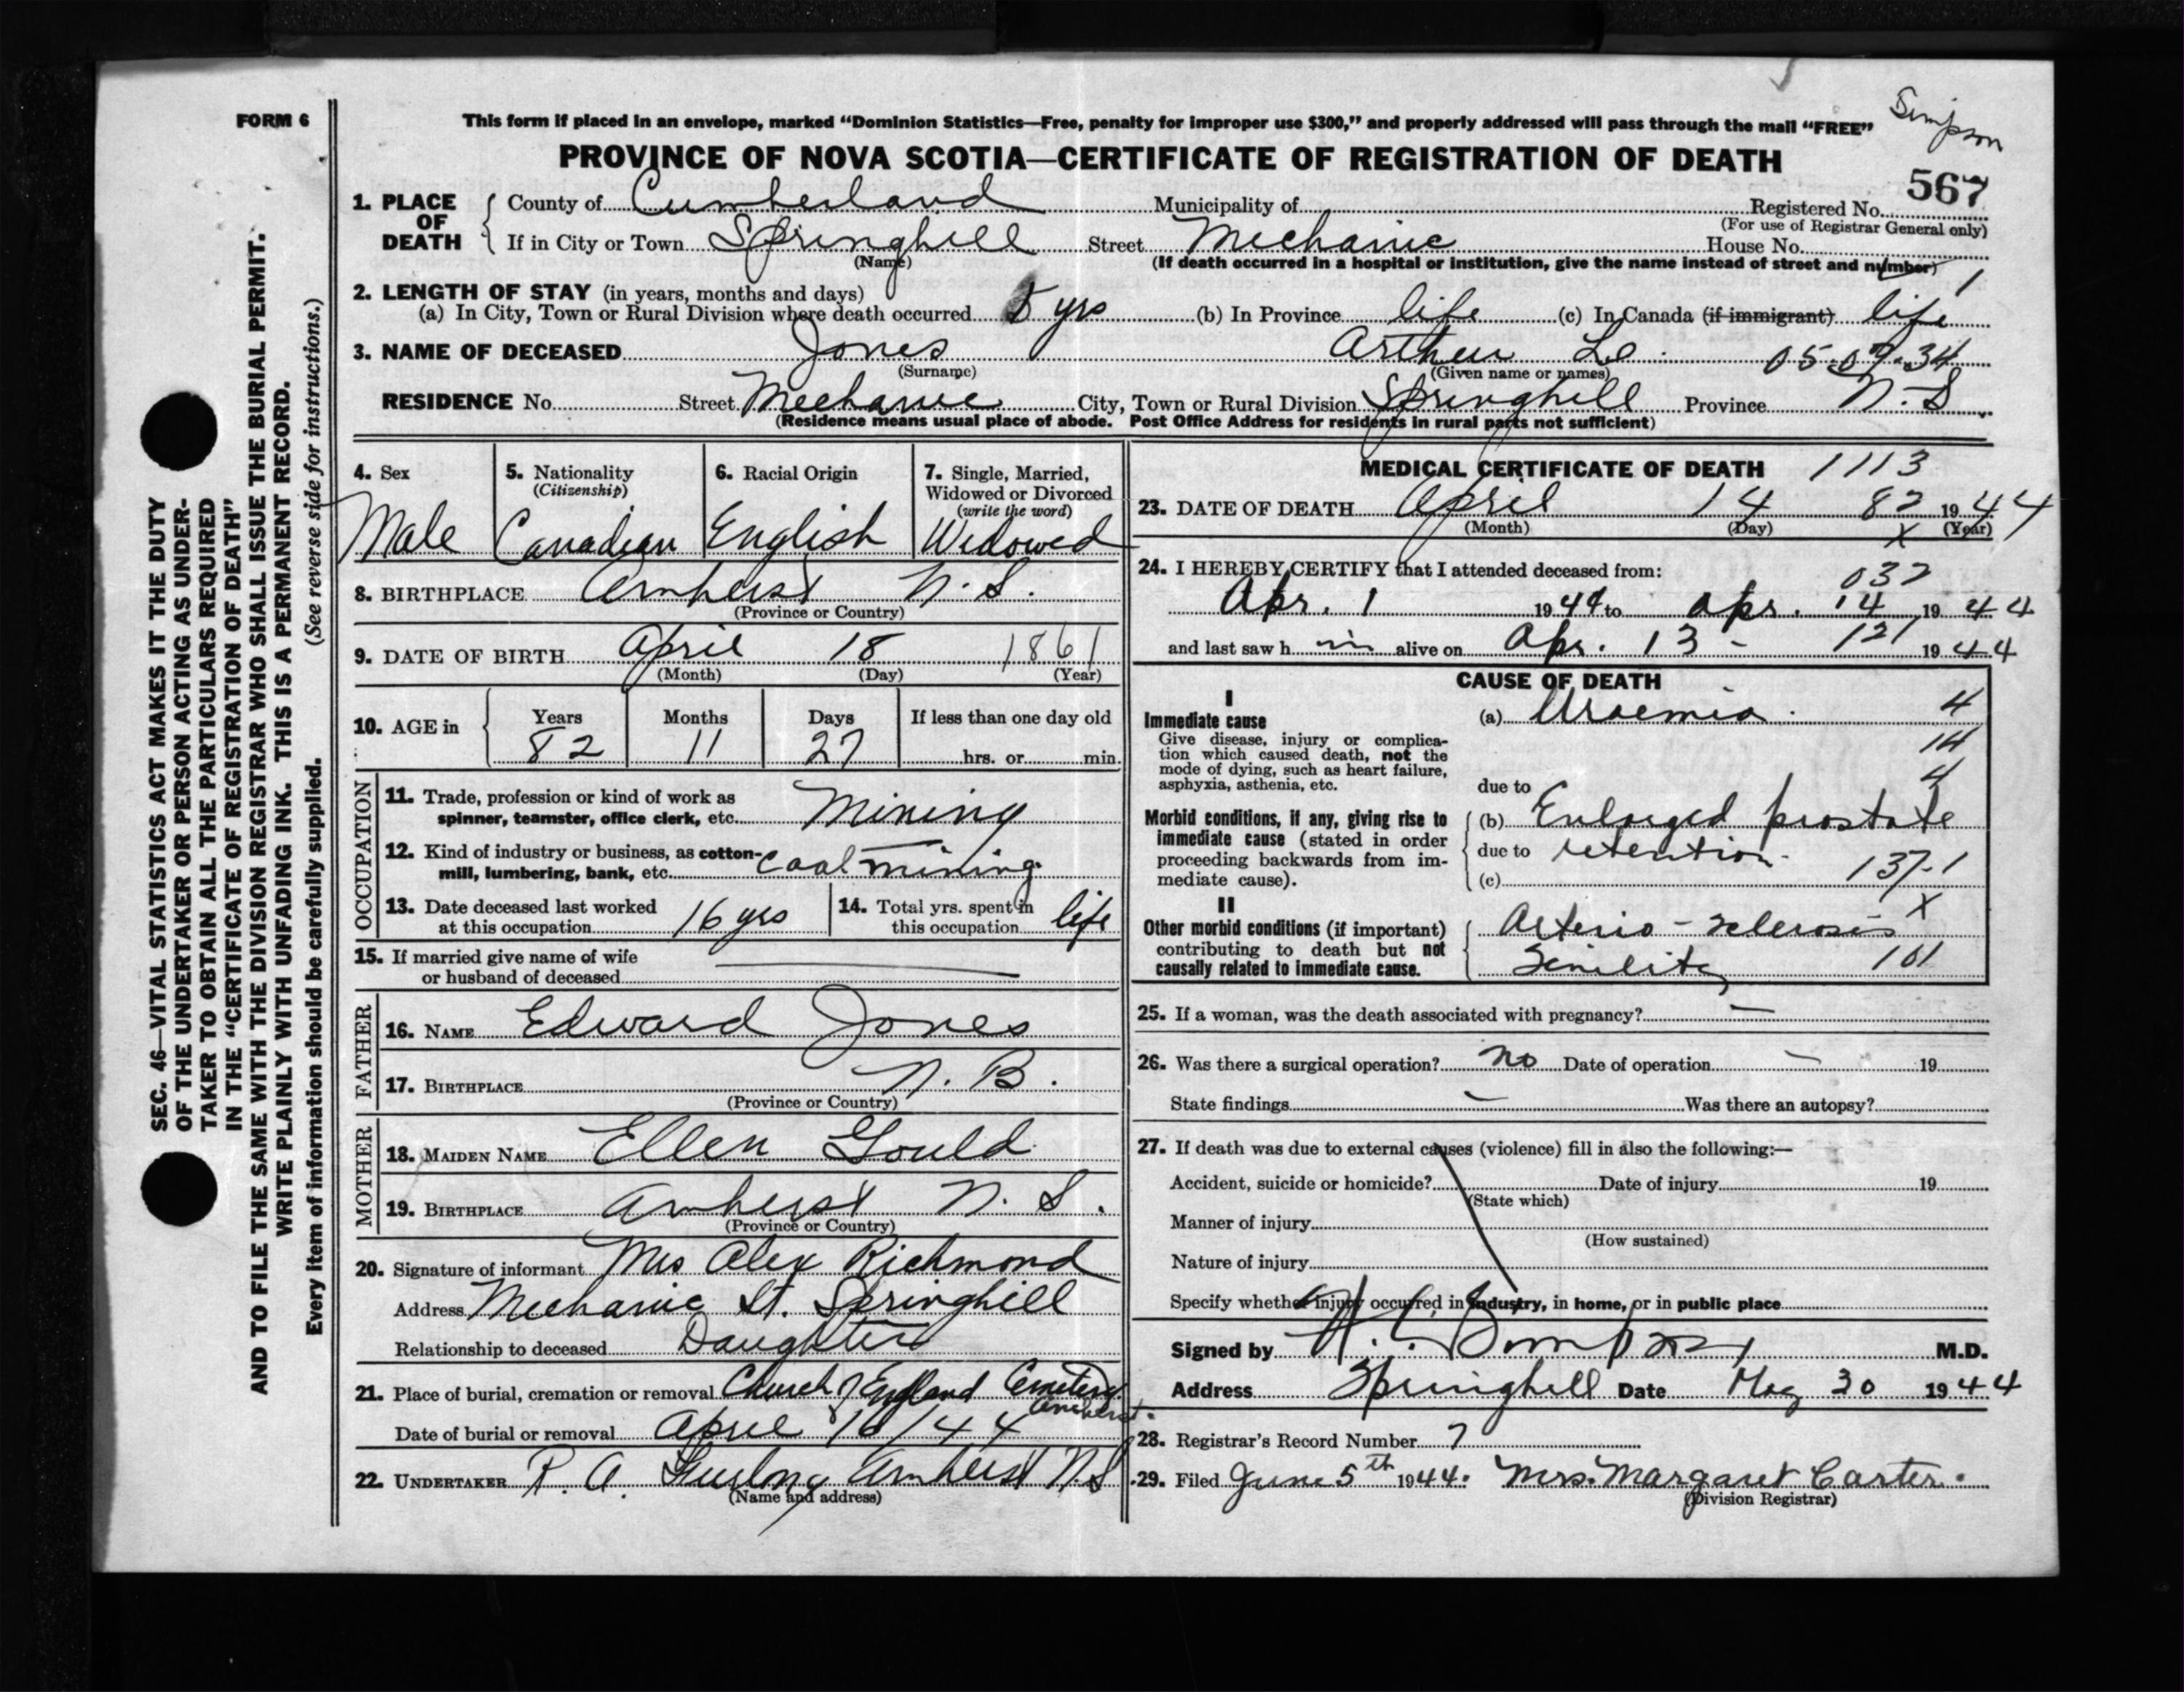 Simpson
FORM 6
This form if placed in an envelope, marked “Dominion Statistics—Free, penalty for improper use $300,” and properly addressed will pass through the mail “FREE”
PROVINCE OF NOVA SCOTIA—CERTIFICATE OF REGISTRATION OF DEATH
567
1. PLACE OF DEATH County of Cumberland Municipality of Registered No.
(For use of Registrar General only)
If in City or Town Springhill Street Mechanic House No.
(Name) (If death occurred in a hospital or institution, give the name instead of street and number)
2. LENGTH OF STAY (in years, months and days)
(a) In City, Town or Rural Division where death occurred 5 yrs (b) In Province life (c) In Canada (if immigrant) life
3. NAME OF DECEASED Jones Arthur 05.09.34
(Surname) (Given name or names)
RESIDENCE No. Street Mechanic City, Town or Rural Division Springhill Province N.S
(Residence means usual place of abode. Post Office Address for residents in rural parts not sufficient)
4. Sex
Male
5. Nationality
(Citizenship)
Canadian
6. Racial Origin
English
7. Single, Married,
Widowed or Divorced
(write the word)
Widowed
8. BIRTHPLACE Amherst N.S.
(Province or Country)
9. DATE OF BIRTH April 18 1861
(Month) (Day) (Year)
10. AGE in Years Months Days If less than one day old
82 11 27 hrs. or min.
OCCUPATION
11. Trade, profession or kind of work as
spinner, teamster, office clerk, etc. Mining
12. Kind of industry or business, as cotton-
mill, lumbering, bank, etc. coal mining
13. Date deceased last worked
at this occupation 16 yrs
14. Total yrs. spent in
this occupation life
15. If married give name of wife
or husband of deceased
FATHER
16. NAME Edward Jones
17. BIRTHPLACE N. B.
(Province or Country)
MOTHER
18. MAIDEN NAME Ellen Gould
19. BIRTHPLACE Amherst N. S.
(Province or Country)
20. Signature of informant Mrs Alex Richmond
Address Mechanic St. Springhill
Relationship to deceased Daughter
21. Place of burial, cremation or removal Church of England Cemetery
Amherst.
Date of burial or removal April 16/44
22. UNDERTAKER R. A. Furlong Amherst N.S
(Name and address)
MEDICAL CERTIFICATE OF DEATH 1113
23. DATE OF DEATH April 14 82 1944
(Month) (Day) x (Year)
24. I HEREBY CERTIFY that I attended deceased from:
032
Apr. 1 1944 to Apr. 14 1944
and last saw h im alive on Apr. 13 - 121 1944
CAUSE OF DEATH
I
Immediate cause (a) Uraemia. 4
Give disease, injury or complica-
tion which caused death, not the
mode of dying, such as heart failure,
asphyxia, asthenia, etc.
14
4
due to
Morbid conditions, if any, giving rise to
immediate cause (stated in order
proceeding backwards from im-
mediate cause).
(b) Enlarged prostate
due to retention.
(c) 137-1
II
Other morbid conditions (if important)
contributing to death but not
causally related to immediate cause.
x
Arterio-sclerosis
Senility 101
25. If a woman, was the death associated with pregnancy? —
26. Was there a surgical operation? no Date of operation - 19
State findings - Was there an autopsy?
27. If death was due to external causes (violence) fill in also the following:—
Accident, suicide or homicide? Date of injury 19
(State which)
Manner of injury
(How sustained)
Nature of injury
Specify whether injury occurred in industry, in home, or in public place
Signed by M.D.
Address Springhill Date May 30 1944
28. Registrar's Record Number 7
29. Filed June 5th 1944. Mrs. Margaret Carter.
(Division Registrar)
SEC. 46—VITAL STATISTICS ACT MAKES IT THE DUTY
OF THE UNDERTAKER OR PERSON ACTING AS UNDER-
TAKER TO OBTAIN ALL THE PARTICULARS REQUIRED
IN THE “CERTIFICATE OF REGISTRATION OF DEATH”
AND TO FILE THE SAME WITH THE DIVISION REGISTRAR WHO SHALL ISSUE THE BURIAL PERMIT.
WRITE PLAINLY WITH UNFADING INK. THIS IS A PERMANENT RECORD.
Every item of information should be carefully supplied. (See reverse side for instructions.)